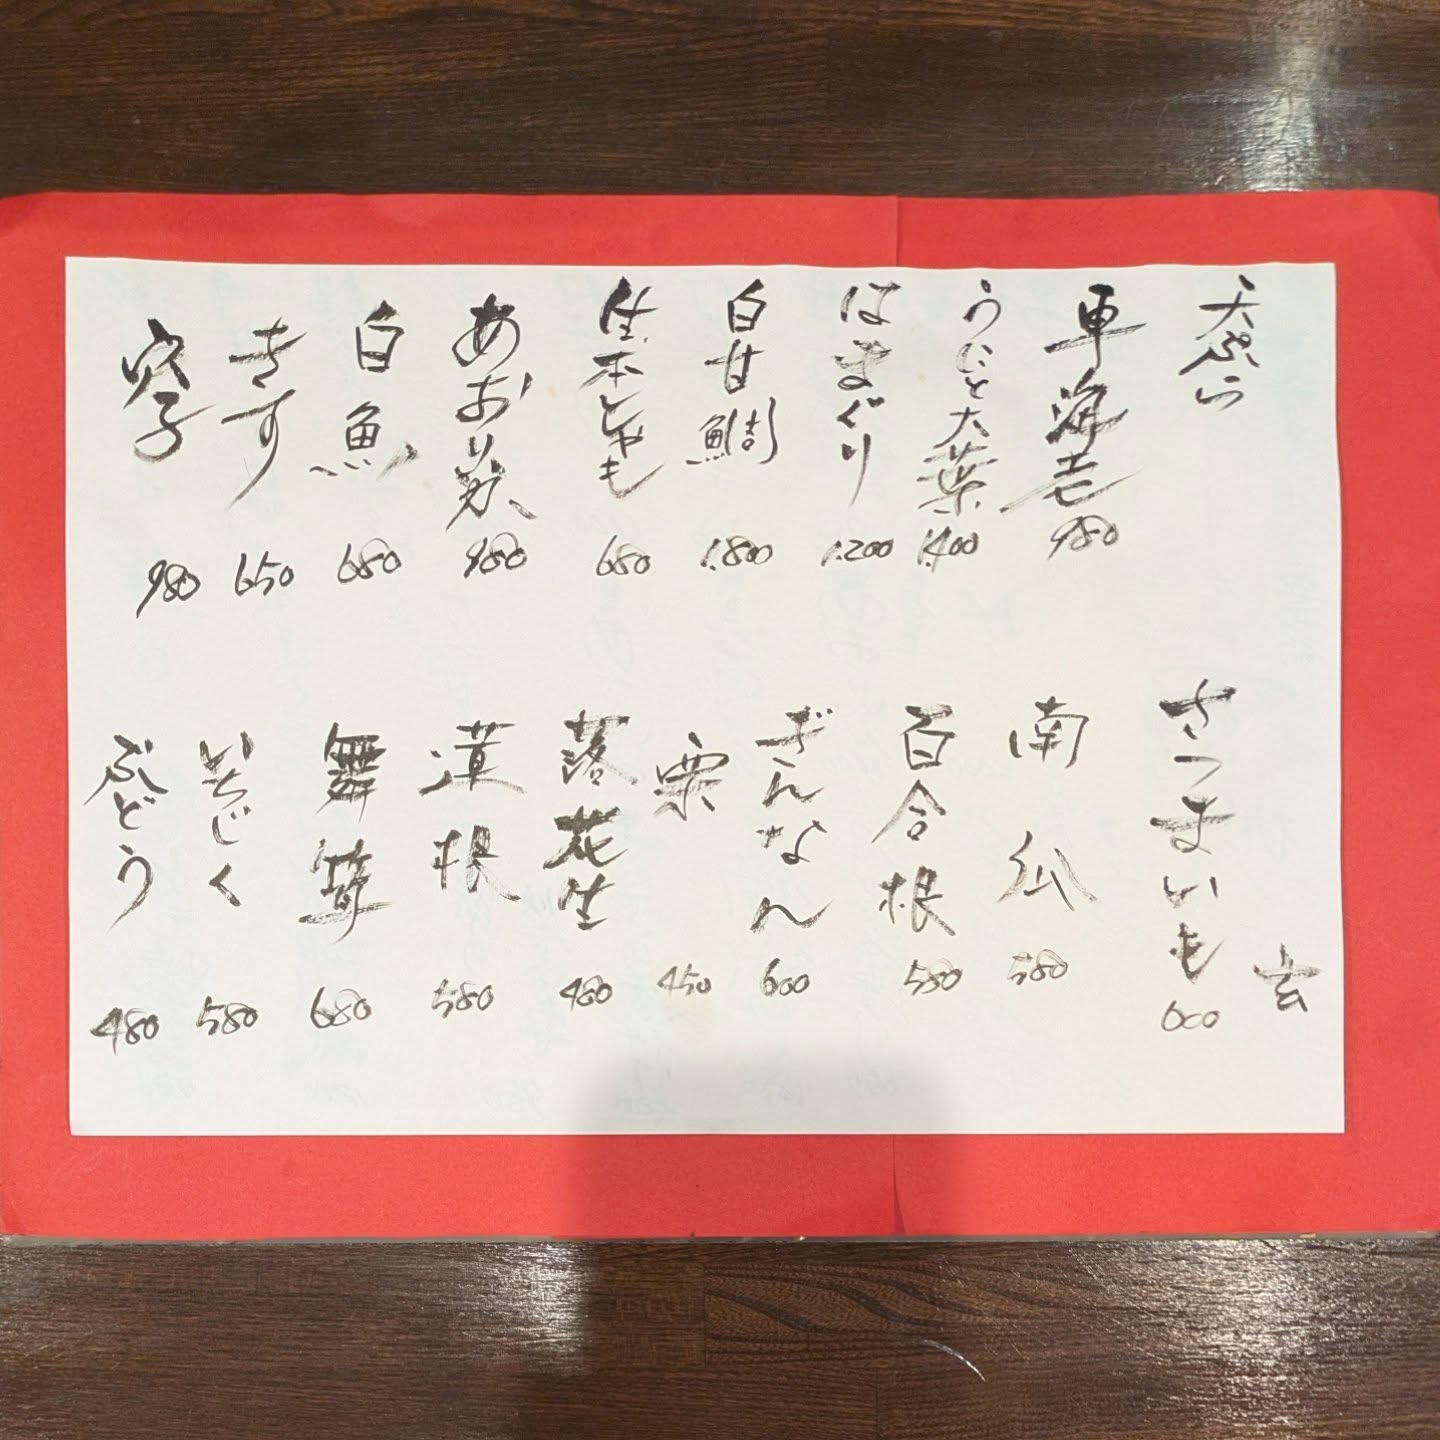 天ぷら
車海老
980
うにと大葉
1.400
はまぐり
1.200
白甘鯛
1.800
生本ししゃも
680
あおりいか
980
白魚
680
きす
650
穴子
980
さつまいも
600
南瓜
580
百合根
580
ぎんなん
600
栗
450
落花生
480
蓮根
580
舞茸
680
いちじく
580
ぶどう
480
玄